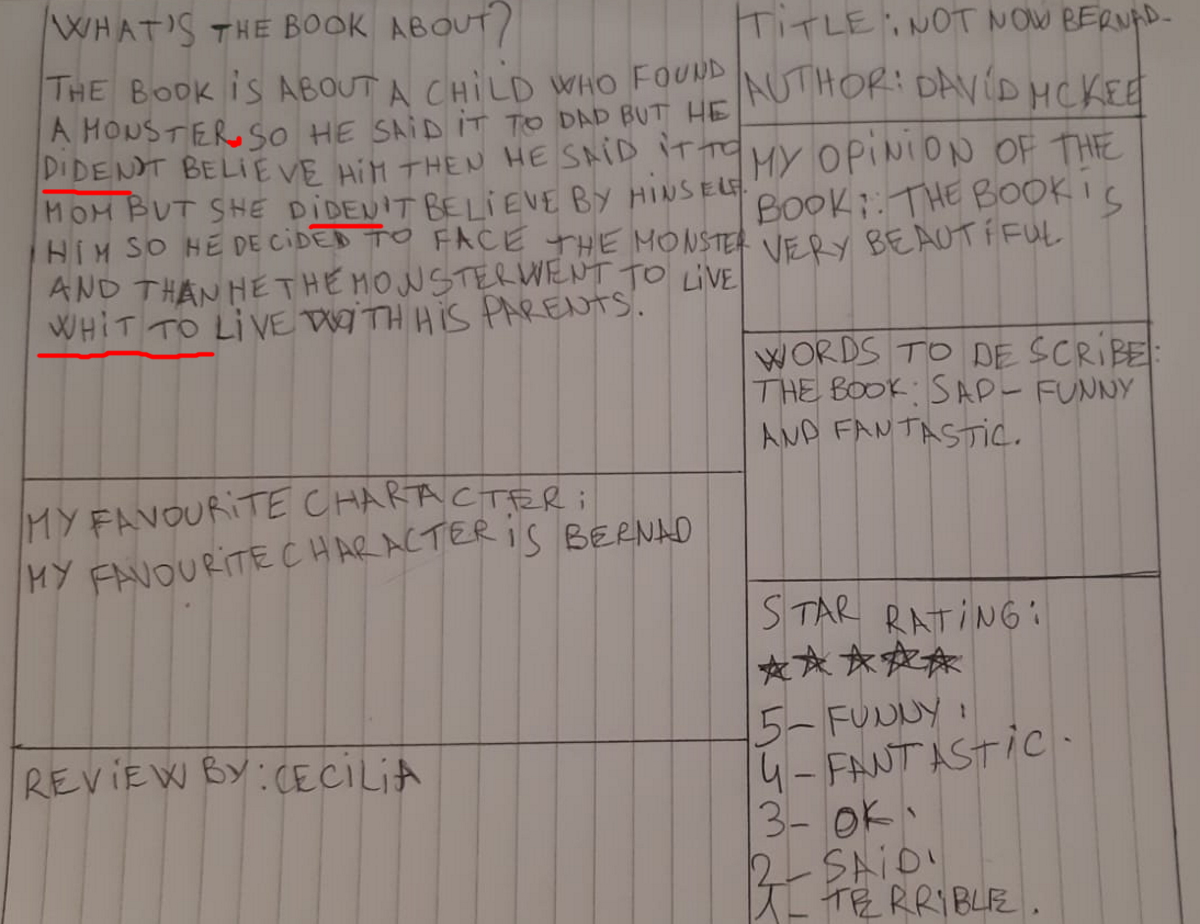 WHAT'S THE BOOK ABOUT?
THE BOOK iS ABOUT A CHiLD WHO FOUND
A MONSTER, SO HE SAiD iT TO DAD BUT HE
DiDEN'T BELIEVE HiM THEN HE SAiD iT TO
MOM BUT SHE DiDEN'T BELIEVE BY HiNSELF.
HiM SO HE DECiDED TO FACE THE MONSTER
AND THAN HE THE MONSTER WENT TO LiVE
WHiT TO LiVE WiTH HiS PARENTS.
MY FAVOURiTE CHARACTER:
MY FAVOURiTE CHARACTER iS BERNAD
REViEW BY: CECiLiA
TiTLE: NOT NOW BERNAD-
AUTHOR: DAViD MCKEE
MY OPiNiON OF THE
BOOK:: THE BOOK iS
VERY BEAUTiFUL
WORDS TO DESCRiBE:
THE BOOK: SAD- FUNNY
AND FANTASTiC.
STAR RATiNG:
5- FUNNY.
4- FANTASTiC.
3- OK.
2- SAiD.
1- TERRiBLE.